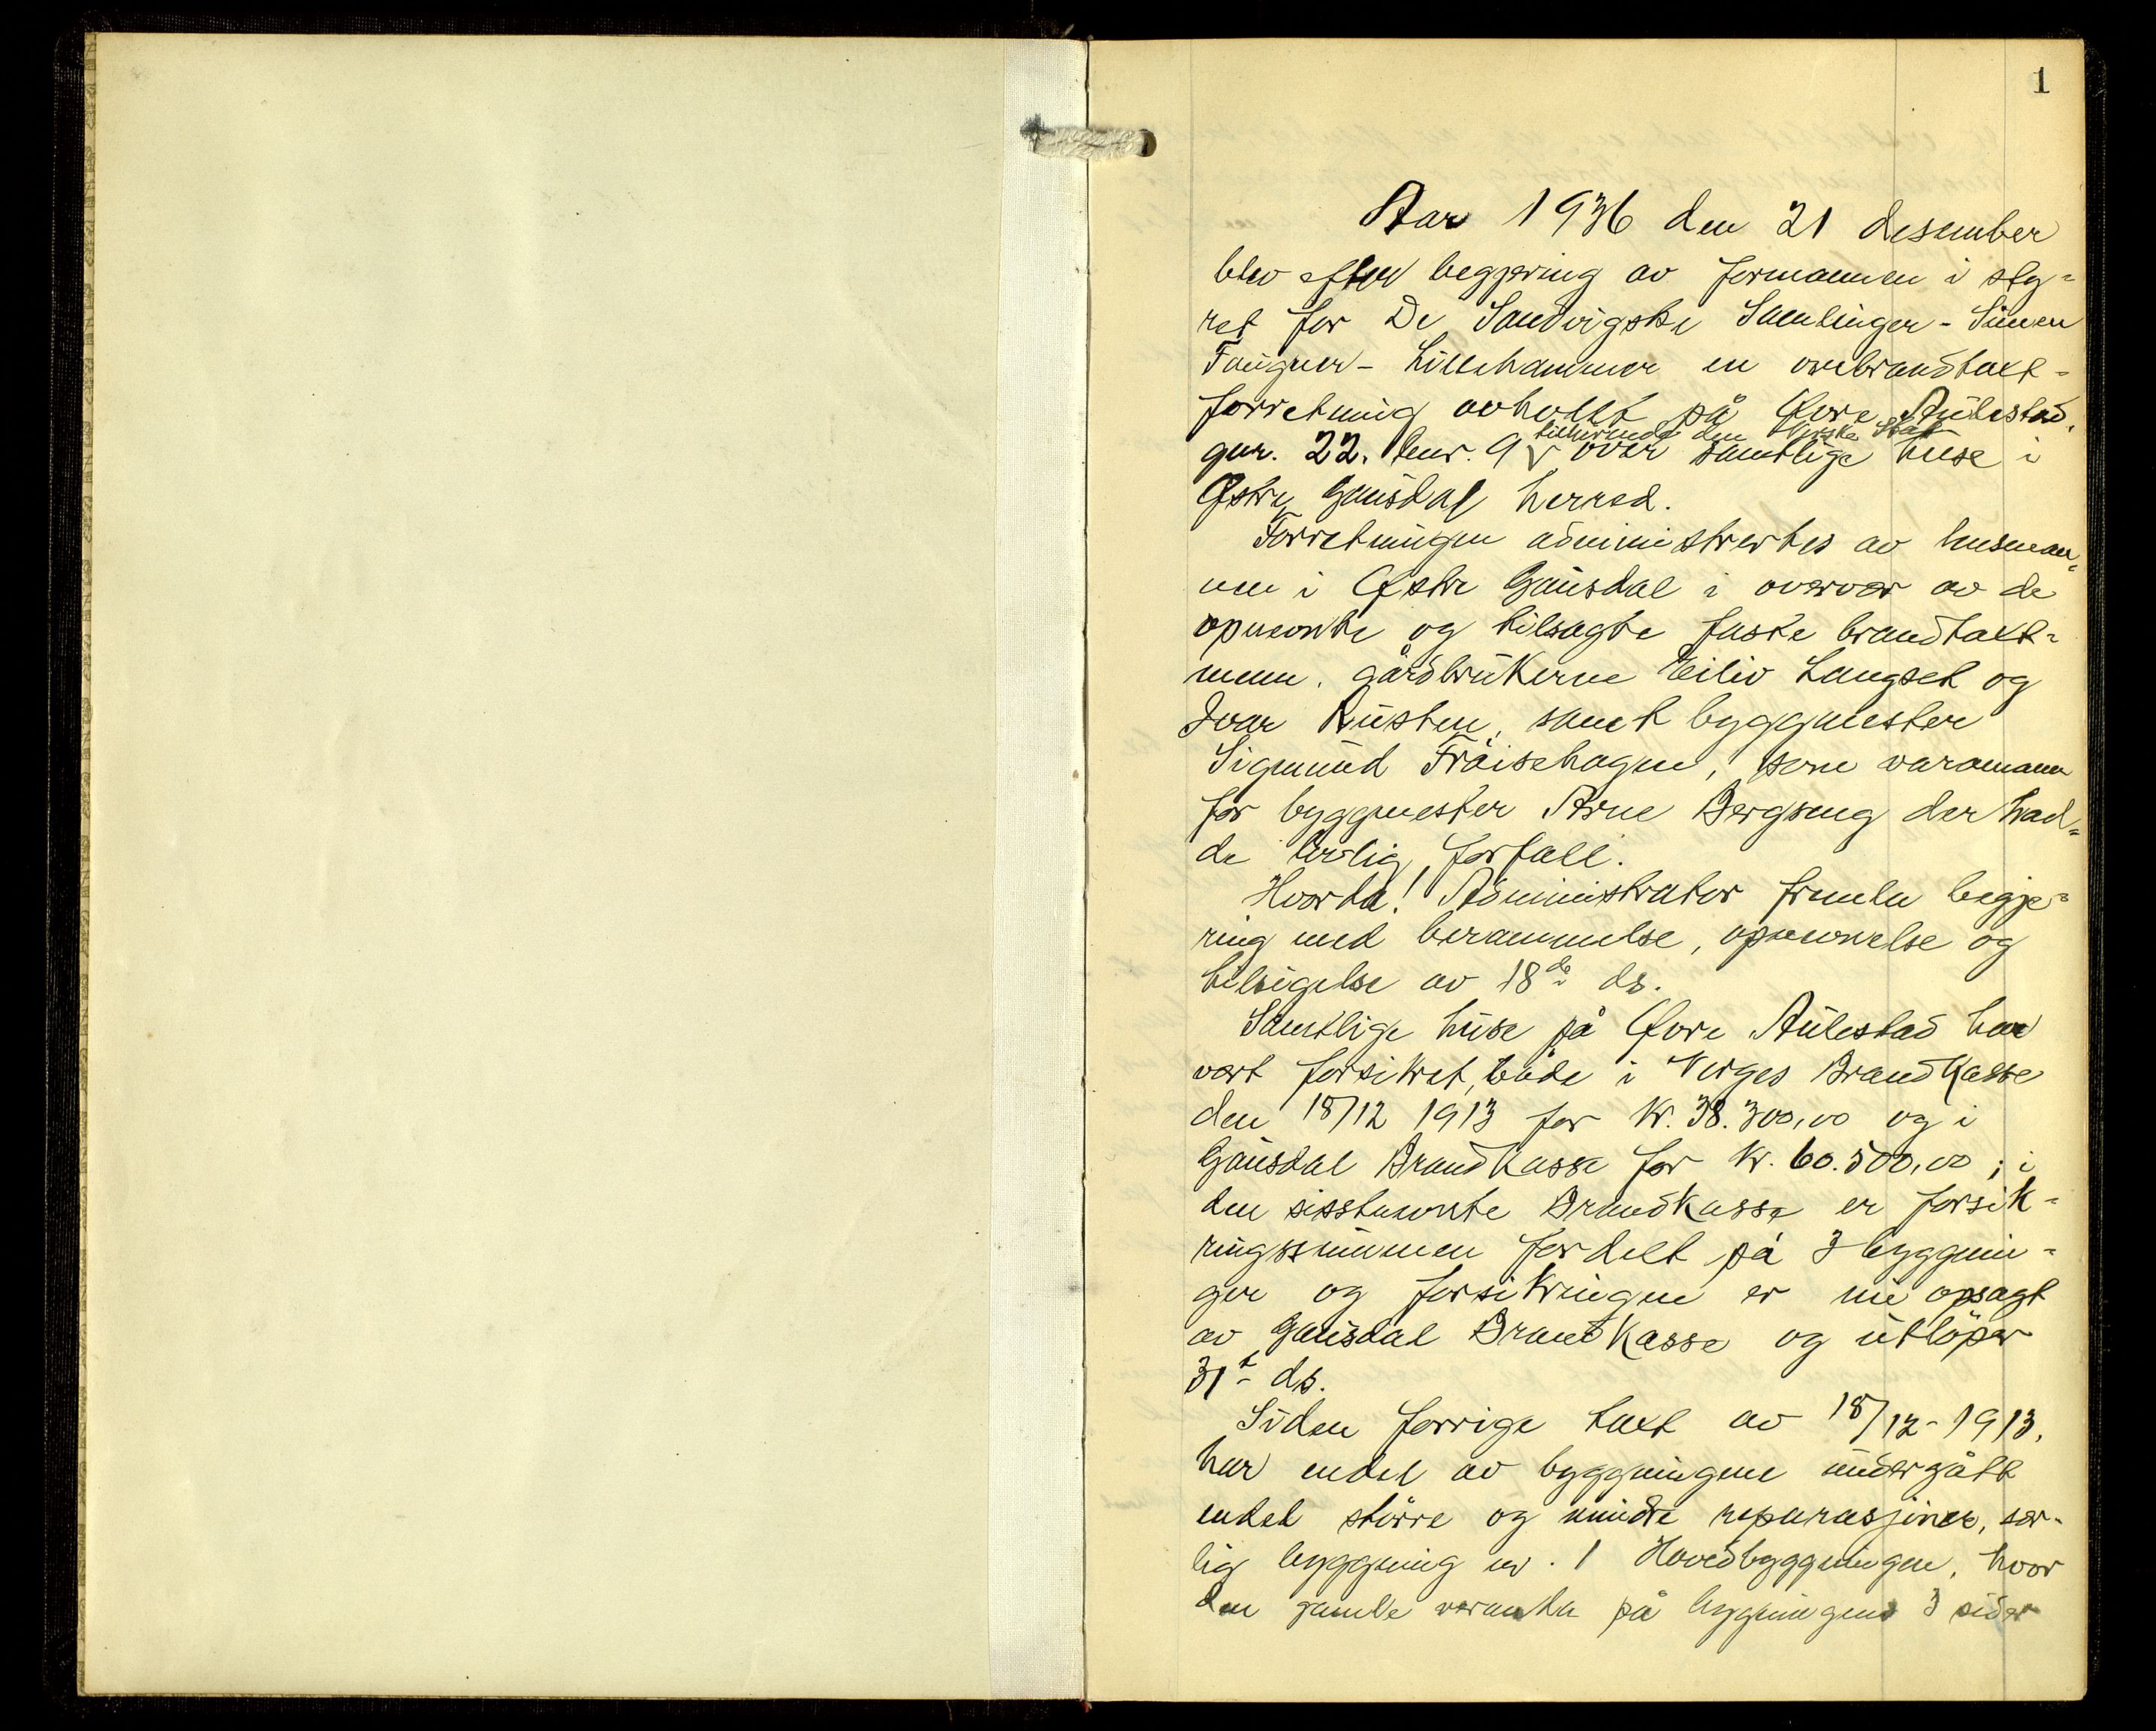 1
Aar 1936 den 21 desember
blev efter begjæring av formannen i sty-
ret for De Sandvigske Samlinger - Simen
Fougner - Lillehammer en ombrandtaxt-
forretning avholdt på Øvre Aulestad,
tilhørende den Norske Stat
gnr. 22. bnr. 9 v over samtlige huse i
Østre Gausdal herred.
Forretningen administrertes av lensman-
nen i Østre Gausdal i overvær av de
opnevnte og tilsagte faste brandtakst-
menn. gårdbrukerne Eiliv Langset og
Ivar Rusten, samt byggmester
Sigmund Fröisehagen, som varamann
for byggmester Arne Bergseng der had-
de lovlig forfall.
Hvorda! Administrator fremla begjæ-
ring med berammelse, opnevnelse og
tilsigelse av 18de ds.
Samtlige huse på Øvre Aulestad har
vært forsikret, både i Norges Brandkasse
den 18/12 1913 for kr. 38.300,00 og i
Gausdal Brandkasse for kr. 60.500,00; i
den sisstnevnte Brandkasse er forsik-
ringssummen fordelt på 3 byggnin-
ger og forsikringen er nu opsagt
av Gausdal Brandkasse og utlöper
31t ds.
Siden forrige taxt av 18/12-1913,
har endel av byggningene undergått
endel större og mindre reparasjoner, sær-
lig byggning nr. 1 Hovedbyggningen, hvor
den gamle veranda på byggningens 3 sider